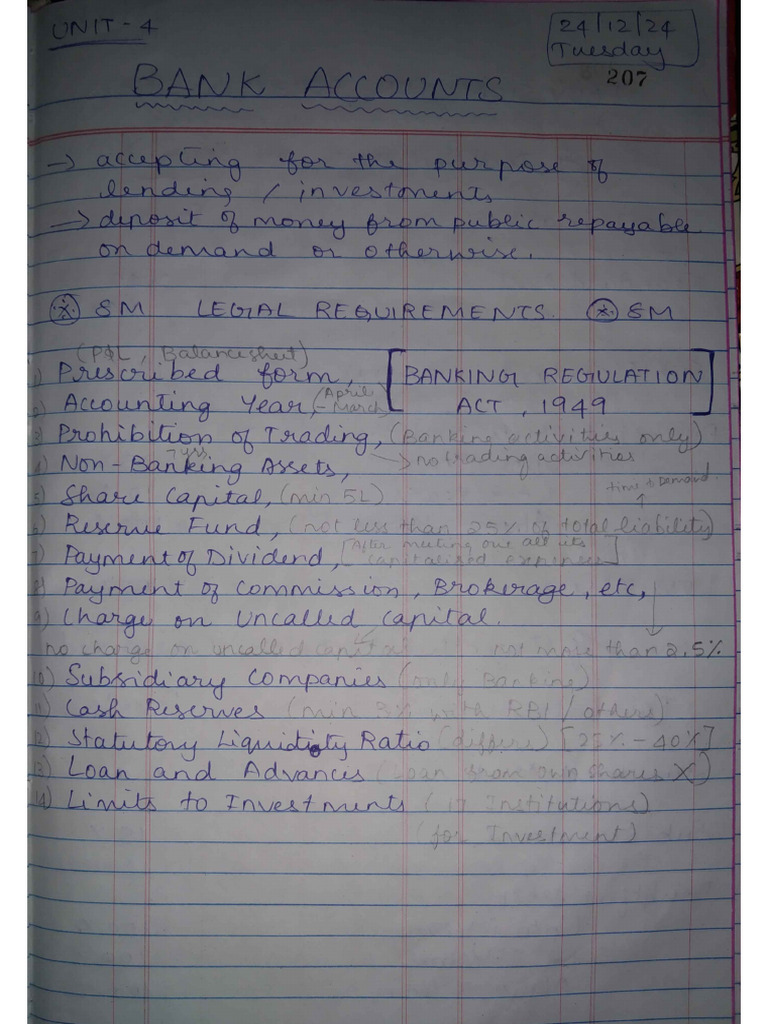 UNIT - 4
24/12/24
Tuesday
207
BANK ACCOUNTS
→ accepting for the purpose of
lending / investments
→ deposit of money from public repayable
on demand or otherwise.
* 8M LEGAL REQUIREMENTS. * 8M
(P&L, Balancesheet)
1) Prescribed form, [BANKING REGULATION
2) Accounting Year, (April - March) ACT, 1949]
3) Prohibition of Trading, (Banking activities only)
→ no trading activities
7 yrs
4) Non-Banking Assets,
time & Demand
5) Share Capital, (min 5L)
6) Reserve Fund, (not less than 25% of total liability)
7) Payment of Dividend, [After meeting out all its capitalised expenses]
8) Payment of Commission, Brokerage, etc,
9) Charge on Uncalled Capital.
no charge on uncalled capital not more than 2.5%
10) Subsidiary Companies (only Banking)
11) Cash Reserves (min 3% with RBI / others)
12) Statutory Liquidity Ratio (differs) [25% - 40%]
13) Loan and Advances (Loan from own shares X)
14) Limits to Investments (17 Institutions)
(for Investment)